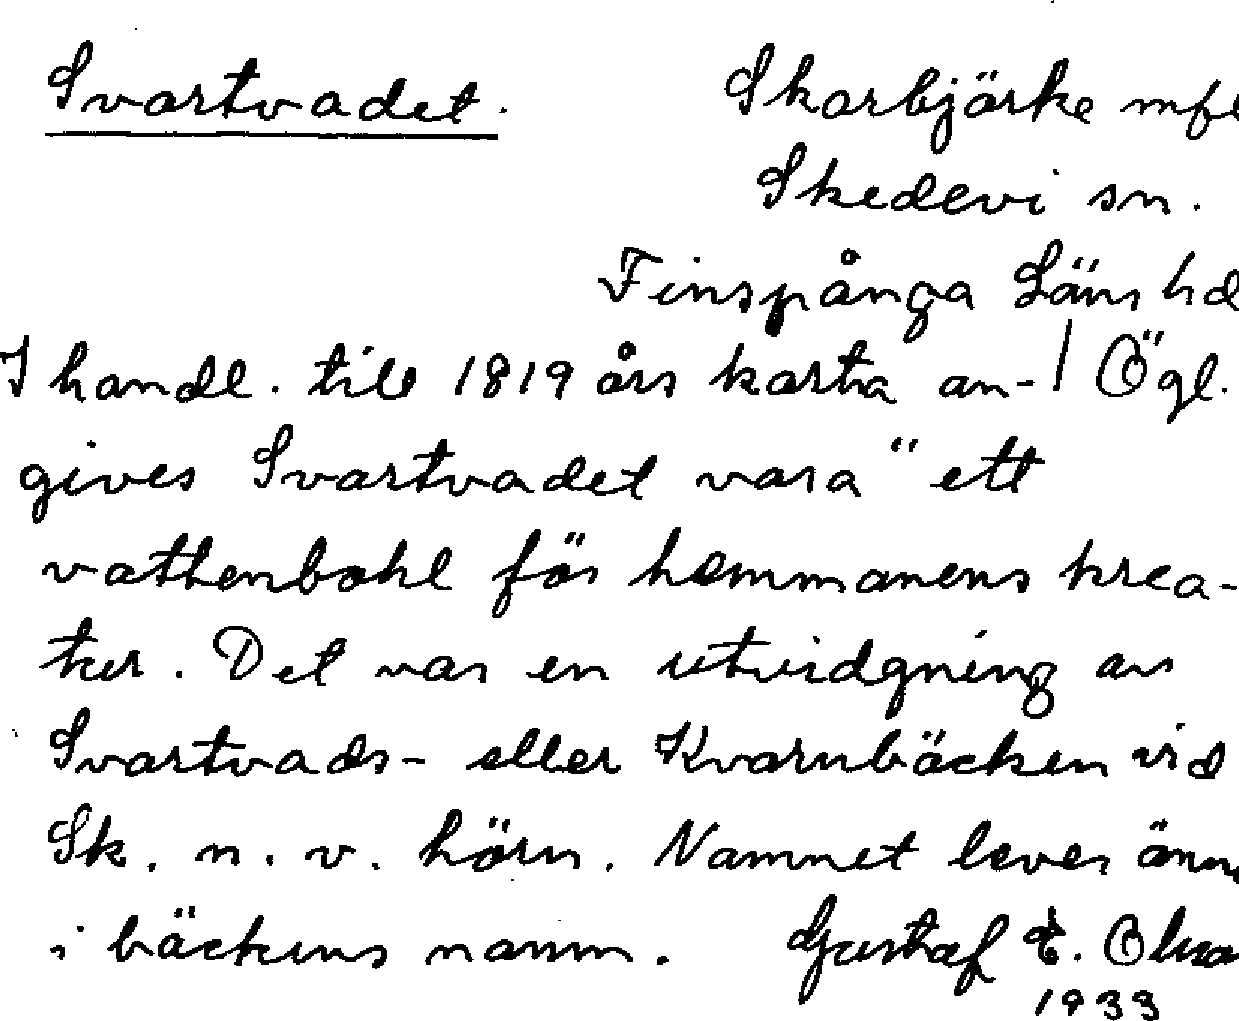 Svartvadet. Skarbjörke mfl
Skedevi sn.
Finspånga Läns hd
I handl. till 1819 års karta an- | Ögl.
gives Svartvadet vara "ett
vattenbohl för hemmanens krea-
tur. Det var en utvidgning av
Svartvads- eller Kvarnbäcken vid
Sk. n. v. hörn. Namnet lever ännu
i bäckens namn. Gustaf E. Olsso
1933